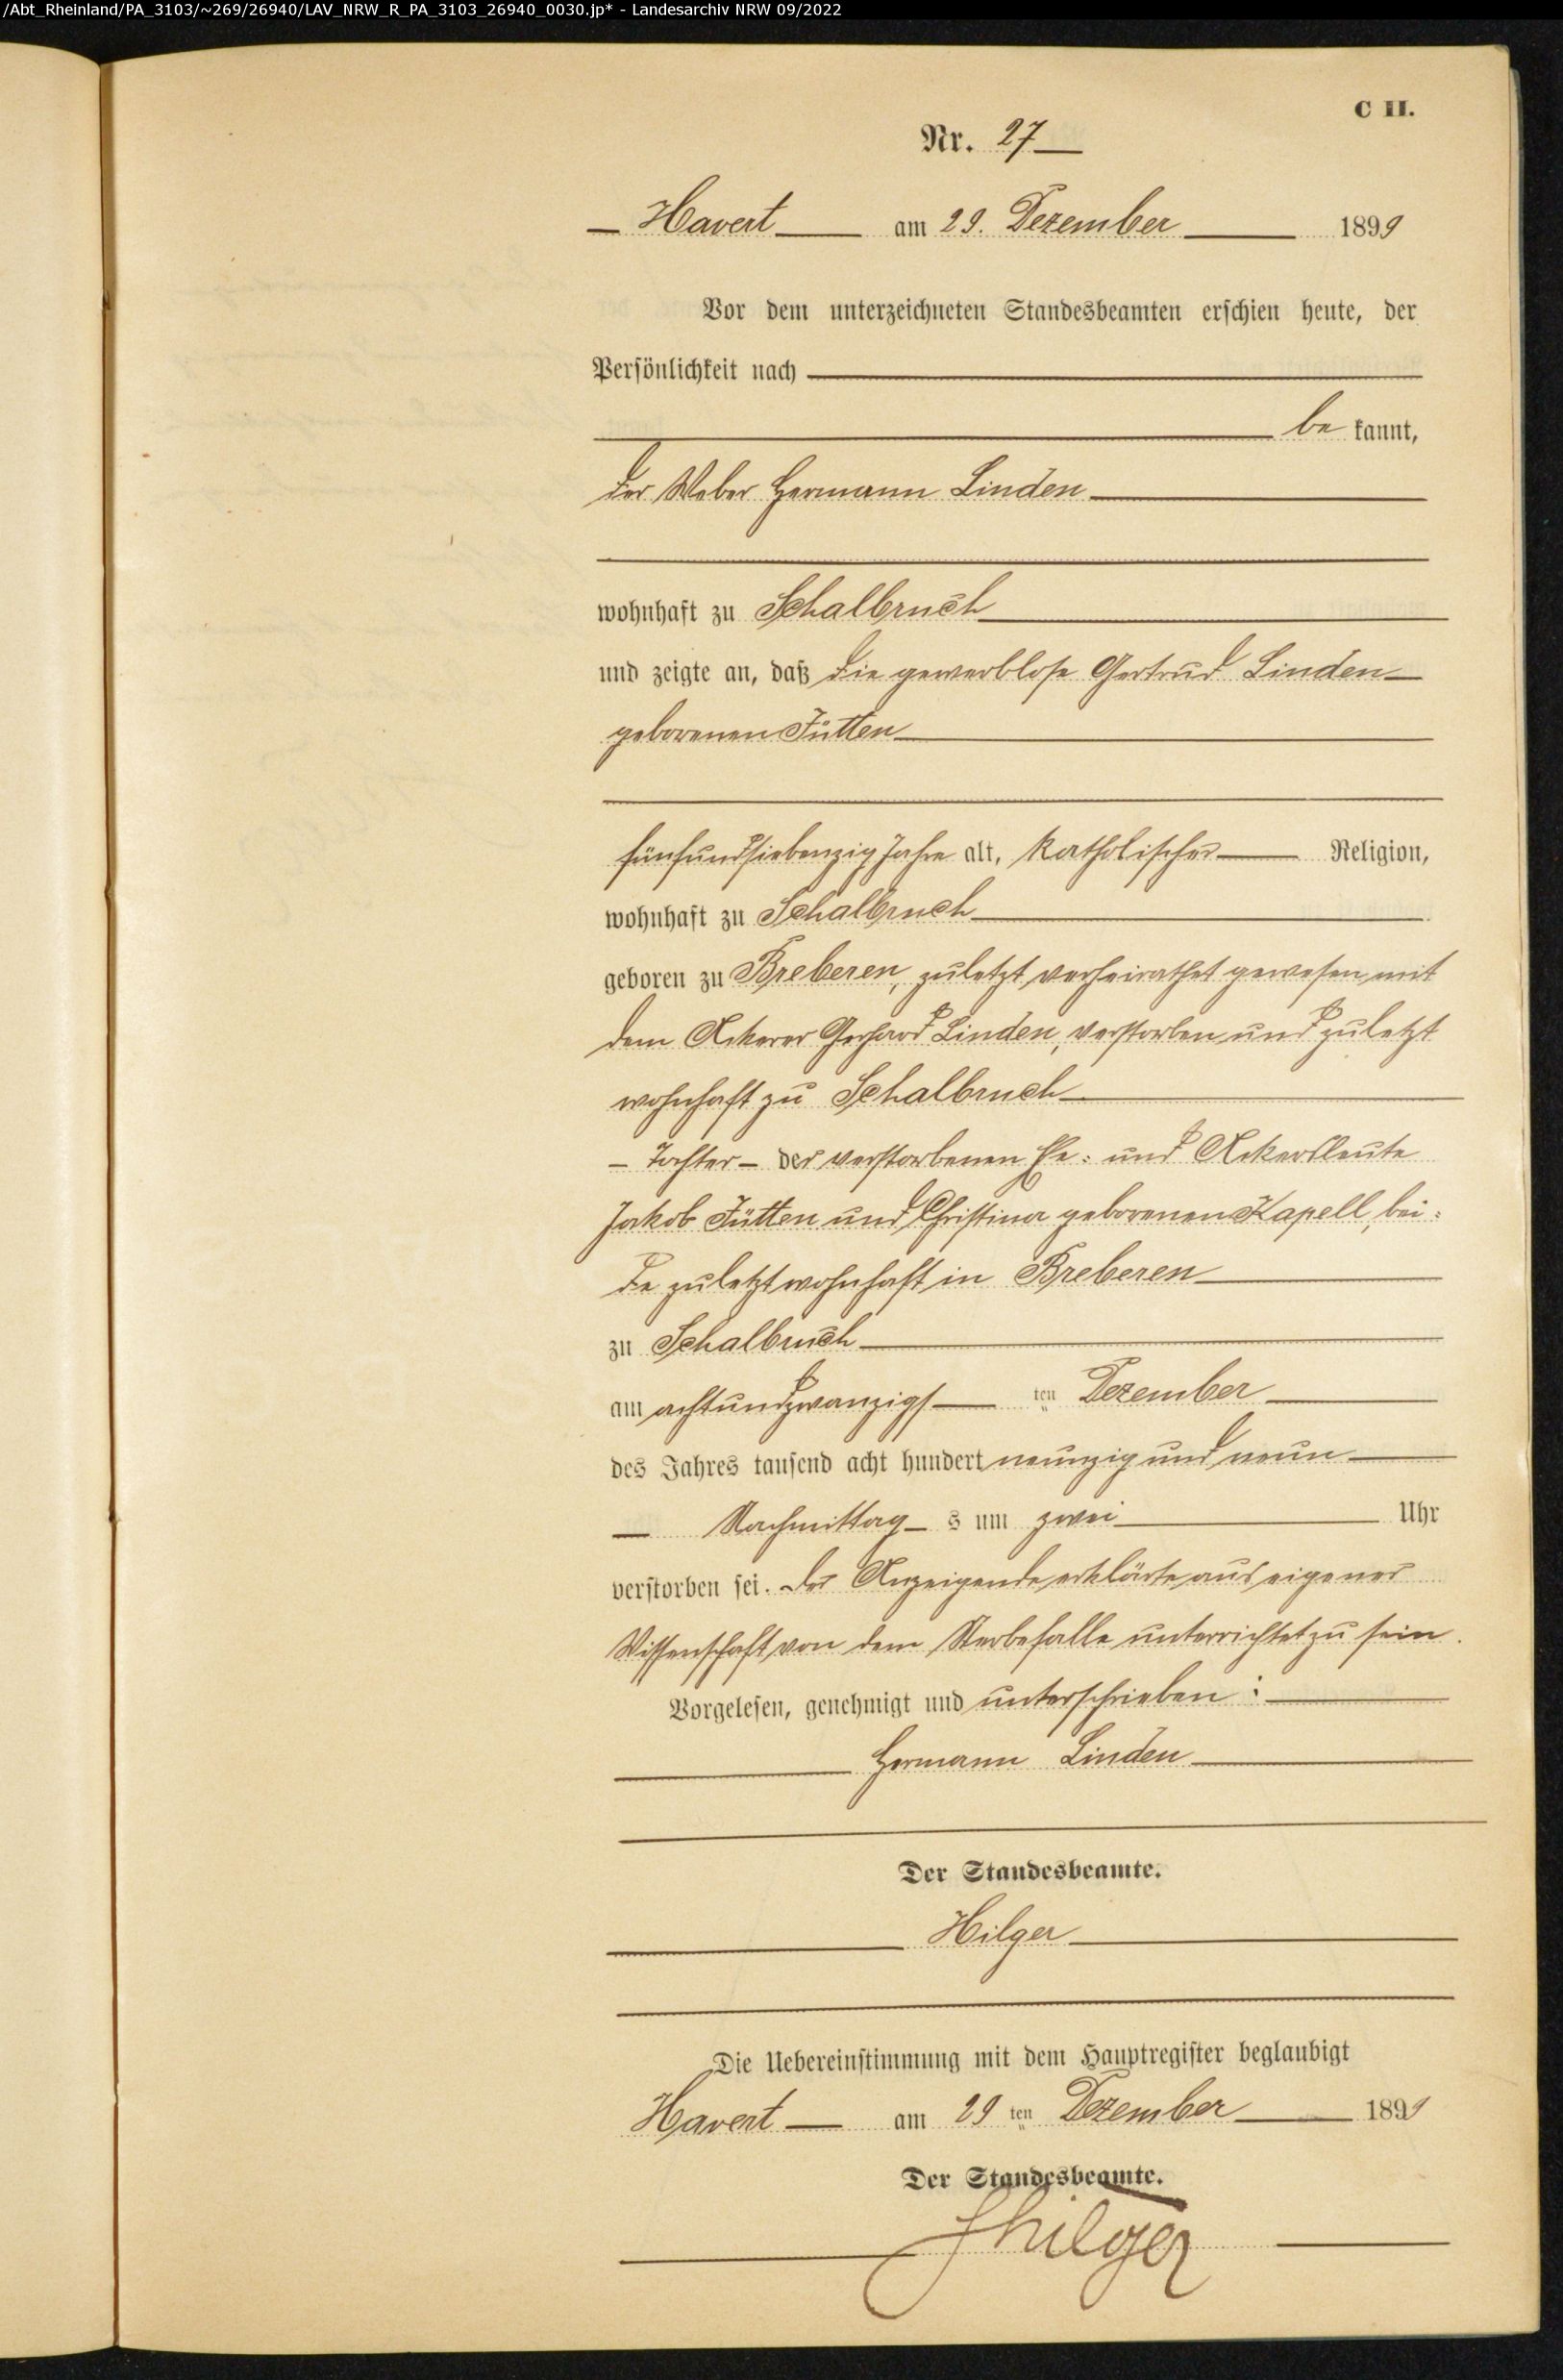 /Abt_Rheinland/PA_3103/~269/26940/LAV_NRW_R_PA_3103_26940_0030.jp* - Landesarchiv NRW 09/2022
C II.
Nr. 27
Havert am 29. Dezember 1899
Vor dem unterzeichneten Standesbeamten erschien heute, der
Persönlichkeit nach
be kannt,
der Weber Hermann Linden
wohnhaft zu Schalbruch
und zeigte an, daß die gewerblose Gertrud Linden
geborenen Jütten
fünfundsiebenzig Jahre alt, katholischer Religion,
wohnhaft zu Schalbruch
geboren zu Breberen, zuletzt verheirathet gewesen mit
dem Ackerer Gerhard Linden, verstorben und zuletzt
wohnhaft zu Schalbruch
- Tochter - der verstorbenen Ehe- und Ackersleute
Jakob Jütten und Christina geborenen Kapell, bei-
de zuletzt wohnhaft in Breberen
zu Schalbruch
am achtundzwanzigs ten Dezember
des Jahres tausend acht hundert neunzig und neun
Nachmittag s um zwei Uhr
verstorben sei. Der Anzeigende erklärte aus eigener
Wissenschaft von dem Sterbefalle unterrichtet zu sein.
Vorgelesen, genehmigt und unterschrieben:
Hermann Linden
Der Standesbeamte.
Hilger
Die Uebereinstimmung mit dem Hauptregister beglaubigt
Havert am 29 ten Dezember 1899
Der Standesbeamte.
Hilger